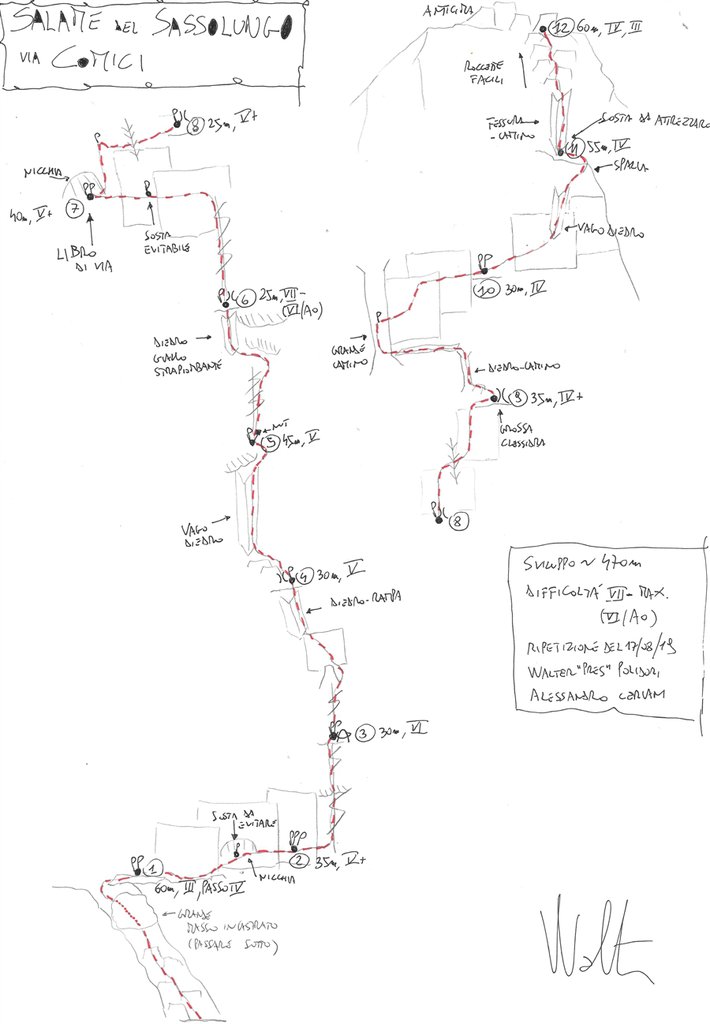 SALAME DEL SASSOLUNGO
VIA COMICI
ANTICIMA
12 60m, IV, III
ROCCETTE
FACILI
FESSURA
-CAMINO
SOSTA DA ATTREZZARE
11 55m, IV
SPALLA
VAGO DIEDRO
10 30m, IV
GRANDE
CAMINO
DIEDRO-CAMINO
9 35m, IV+
GROSSA
CLESSIDRA
8
8 25m, V+
NICCHIA
7
40m, V+
LIBRO
DI VIA
SOSTA
EVITABILE
6 25m, VII-
(VI/A0)
DIEDRO
GIALLO
STRAPIOMBANTE
NUT
5 45m, V
VAGO
DIEDRO
4 30m, V
DIEDRO-RAMPA
3 30m, VI
SOSTA DA
EVITARE
2 35m, V+
NICCHIA
1
60m, III, PASSO IV
GRANDE
MASSO INCASTRATO
(PASSARE SOTTO)
SVILUPPO ~ 470m
DIFFICOLTÀ VII- MAX.
(VI/A0)
RIPETIZIONE DEL 17/08/19
WALTER "PRES" POLIDORI
ALESSANDRO
Walt